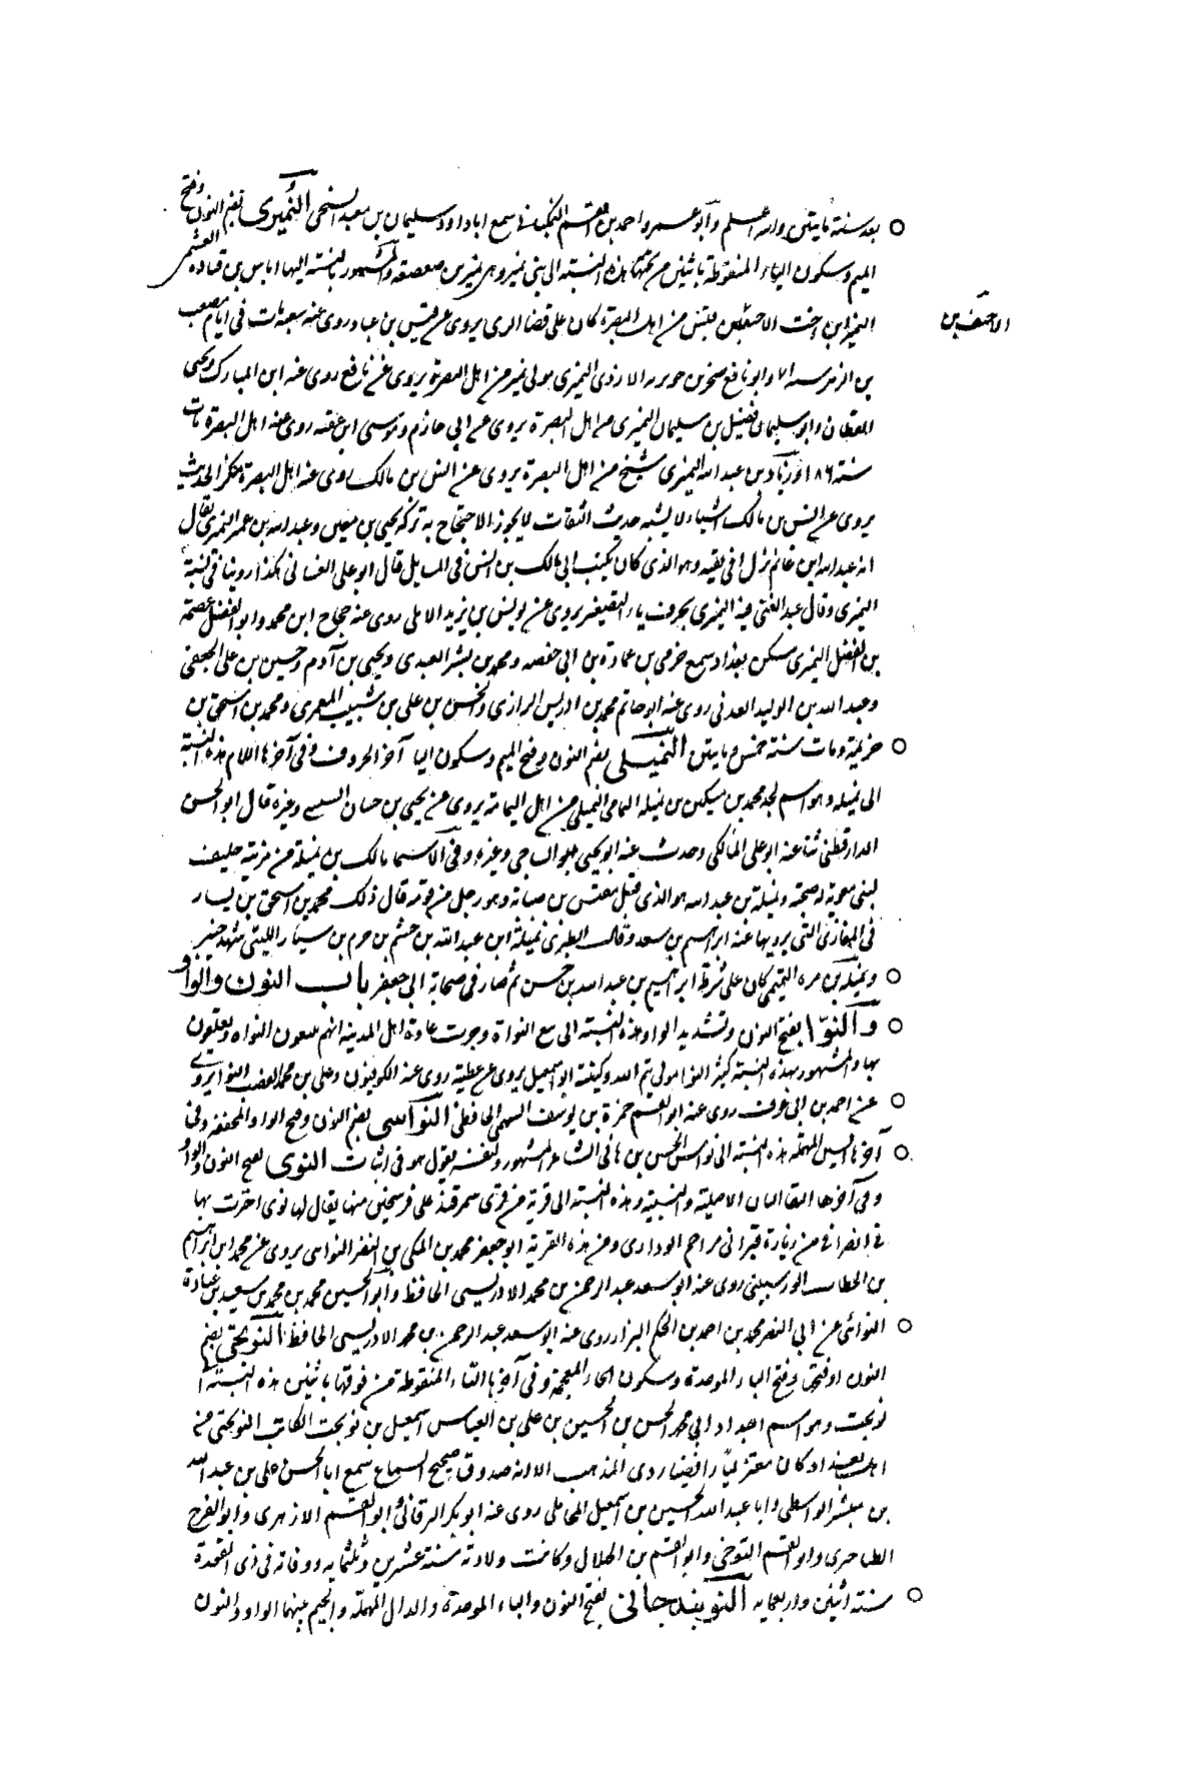 بعد سنة مايتين والله اعلم وابو عمرو احمد بن القسم سمع ابا داود سليمان بن معبد السنجى النميرى بضم النون وفتح
الميم وسكون الياء المنقوطة باثنين من تحتها هذه النسبة الى بنى نمير وهو نمير بن صعصعة والمشهور بالنسبة اليها اياس بن قتادة العبشمى
النميرى ابن اخت الاحنف بن قيس من اهل البصرة كان على قضا الرى يروى عن قيس بن عباد روى عنه شعبة مات فى ايام مصعب
الاحنف بن
بن الزبير سنة وابو نافع صخر بن جويرية الازدى النميرى مولى نمير من اهل البصرة يروى عن نافع روى عنه ابن المبارك ويحيى
القطان وابو سليمان فضيل بن سليمان النميرى من اهل البصرة يروى عن ابى حازم وموسى ابن عقبه روى عنه اهل البصرة مات
سنة ١٨٦ وزياد بن عبد الله النميرى شيخ من اهل البصرة يروى عن انس بن مالك روى عنه اهل البصرة منكر الحديث
يروى عن انس بن مالك اشياء لا يشبه حديث الثقات لا يجوز الاحتجاج به تركه يحيى بن معين وعبد الله بن عمر النميرى يقال
انه عبد الله ابن غانم نزل افريقيه وهو الذى كان يكتب الى مالك بن انس فى المسايل قال ابو على الغسانى هكذا روينا فى نسبه
النميرى وقال عبد الغنى فيه النميرى بحرف ياء التصغير يروى عن يونس بن يزيد الايلى روى عنه حجاج ابن محمد وابو الفضل عصمة
بن الفضل النميرى سكن بغداد سمع حرمى بن عمارة بن ابى حفصه ومحمد بن بشر العبدى ويحيى بن آدم وحسين بن على الجعفى
وعبد الله بن الوليد العدنى روى عنه ابو حاتم محمد بن ادريس الرازى والحسن بن على بن شبيب المعمرى ومحمد بن اسحق بن
خزيمة ومات سنة خمس ومايتين النميلى بضم النون وفتح الميم وسكون اليا آخر الحروف وفى آخرها اللام هذه النسبة
الى نميله وهو اسم لجد محمد بن مسكين بن نميله اليمامى النميلى من اهل اليمامة يروى عن يحيى بن حسان وغيره قال ابو الحسن
الدارقطنى ثنا عنه ابو على المالكى وحدث عنه ابو يحيى وغيره وفى الاسما مالك بن نميلة من مزينة حليف
لبنى معوية له صحبة ونميلة بن عبد الله هو الذى قتل مقيس بن صبابة وهو رجل من قومه قال ذلك محمد بن اسحق بن يسار
فى المغازى التى يرويها عنه ابراهيم بن سعد وقال الطبرى نميلة ابن عبد الله بن حزم بن سيار الليثى شهد خيبر
ونميلة بن مره التميمى كان على شرط ابراهيم بن عبد الله بن حسن ثم صار فى صحابة ابى جعفر باب النون والواو
والنوّا بفتح النون وتشديد الواو هذه النسبة الى بيع النواة وجرت عادة اهل المدينة انهم يبيعون النواه ويعلفون
بها والمشهور بهذه النسبة كثير النوا مولى تيم الله وكنيته ابو اسمعيل يروى عن عطية روى عنه الكوفيون وعلى بن محمد النوا يروى
عن احمد بن ابى عوف روى عنه ابو القسم حمزة بن يوسف السهمى الحافظ النواسى بضم النون وفتح الواو المخففة وفى
آخرها السين المهملة هذه النسبة الى نواس الحسن بن هانى الشاعر المشهور ولنفسه يقول هو فى اثبات النوى بفتح النون والواو
وفى آخرها وهذه النسبة الى قرية من قرى سمرقند على فرسخين منها يقال لها نوى اجتزت بها
فى انصرافى من زيارة قبر ابى مزاحم الوذارى ومن هذه القرية ابو جعفر محمد بن المكى بن النضر يروى عن محمد ابن ابراهيم
بن الخطاب الورسنينى روى عنه ابو سعد عبد الرحمن بن محمد الادريسى الحافظ وابو الحسين محمد بن محمد بن سعيد بن عبادة
النوائى عن ابى النضر محمد بن احمد بن الحكم البزار روى عنه ابو سعد عبد الرحمن بن محمد الادريسى الحافظ النوبختى بضم
النون او فتحها وفتح الباء الموحدة وسكون الخاء المعجمة وفى آخرها التاء المنقوطة من فوقها باثنين هذه النسبة الى
نوبخت وهو اسم لجد ابى محمد الحسن بن الحسين بن على بن العباس اسمعيل بن نوبخت الكاتب النوبختى من
اهل بغداد كان معتزليا رافضيا ردى المذهب الا انه صدوق صحيح السماع سمع ابا الحسن على بن عبد الله
بن مبشر الواسطى وابا عبد الله الحسين بن اسمعيل المحاملى روى عنه ابو بكر البرقانى وابو القسم الازهرى وابو الفرج
الطناجرى وابو القسم التنوخى وابو القسم بن الخلال وكانت ولادته سنة عشرين وثلثمايه ووفاته فى ذى القعدة
سنة اثنين واربعمايه النوبندجانى بفتح النون والباء الموحدة والدال المهملة والجيم بينهما الواو والنون